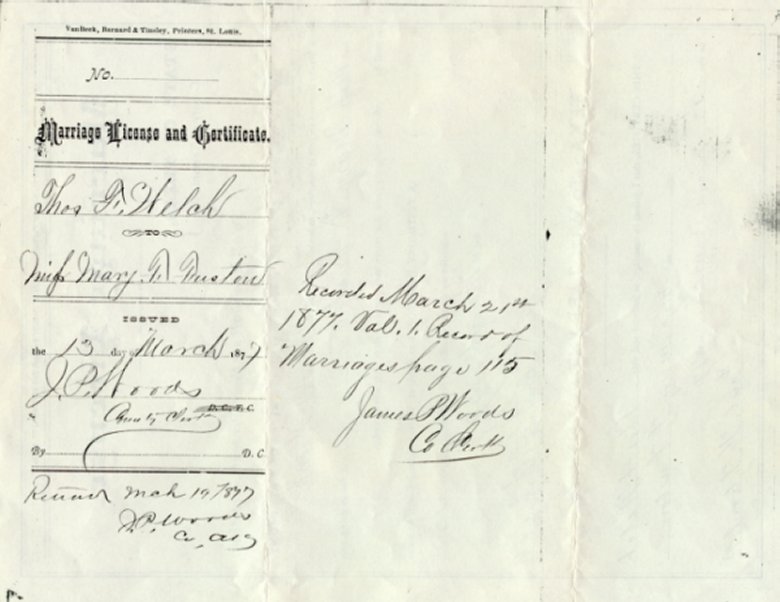 VanBeek, Barnard & Tinsley, Printers, St. Louis.
No.
Marriage License and Certificate.
Thos F. Welch
TO
Miss Mary F.
ISSUED
the 13 day of March 1877
J. P. Woods
County Clerk D. C. F. C.
By D. C.
Mch 19/877
J. P. Woods
Co,
Recorded March 21st
1877. Vol. 1. Record of
Marriages page 115
James P Woods
Co Clerk